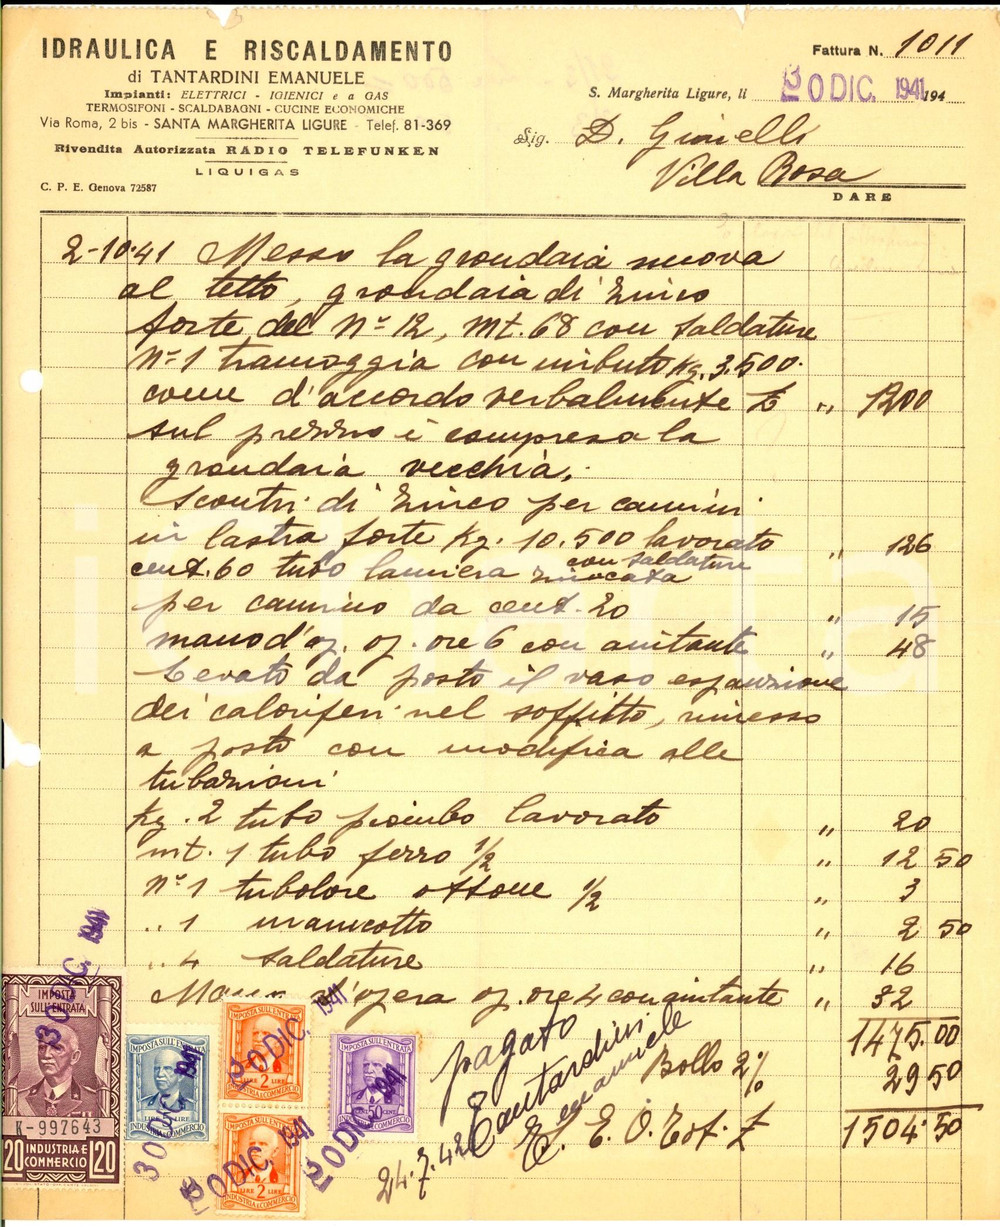 IDRAULICA E RISCALDAMENTO
di TANTARDINI EMANUELE
Impianti: ELETTRICI - IGIENICI e a GAS
TERMOSIFONI - SCALDABAGNI - CUCINE ECONOMICHE
Via Roma, 2 bis - SANTA MARGHERITA LIGURE - Telef. 81-369
Rivendita Autorizzata RADIO TELEFUNKEN
LIQUIGAS
C. P. E. Genova 72587
Fattura N. 1011
S. Margherita Ligure, li 30 DIC. 1941 194
Sig. D. Gioielli
Villa Rosa
DARE
2-10-41 Messo la grondaia nuova
al tetto, grondaia di zinco
forte del N° 12, mt. 68 con saldature
N° 1 tramoggia con imbuto Kg. 3.500.
come d'accordo verbalmente £ " 1200
sul prezzo è compresa la
grondaia vecchia.
Scontri di zinco per camini
in lastra forte Kg. 10.500 lavorato " 126
con saldature
cent. 60 tubo lamiera zincata
per camino da cent. 20 " 15
mano d'op. op. ore 6 con aiutante " 48
Levato da posto il vaso espansione
dei caloriferi nel soffitto, rimesso
a posto con modifica alle
tubazioni
Kg. 2 tubo piombo lavorato " 20
mt. 1 tubo ferro 1/2 " 12 50
N° 1 tubolore ottone 1/2 " 3
" 1 manicotto " 2 50
" 4 saldature " 16
Mano d'opera op. ore 4 con aiutante " 32
1475.00
Bollo 2% 29 50
£. E. O. Tot. £ 1504.50
pagato
Tantardini
Emanuele
24.3.42
30 DIC. 1941
IMPOSTA SULL'ENTRATA
K-997643
20 INDUSTRIA E COMMERCIO 20
IMPOSTA SULL'ENTRATA
LIRE
INDUSTRIA E COMMERCIO
30 DIC. 1941
IMPOSTA SULL'ENTRATA
LIRE 2 LIRE
INDUSTRIA E COMMERCIO
30 DIC. 1941
LIRE 2 LIRE
INDUSTRIA E COMMERCIO
30 DIC. 1941
IMPOSTA SULL'ENTRATA
50 CENT
INDUSTRIA E COMMERCIO
30 DIC. 1941
iCharta